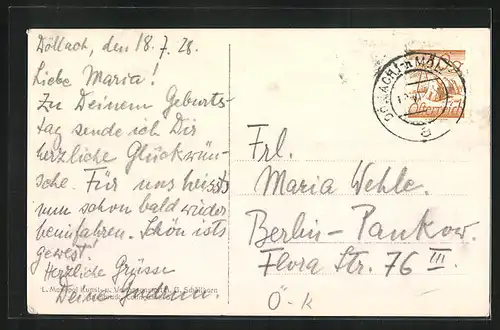 Döllach, den 18.7.28.
Liebe Maria!
Zu Deinem Geburts-
tag sende ich Dir
herzliche Glückwün-
sche. Für uns heissts
nun schon bald wieder
heimfahren. Schön ists
gewest!
Herzliche Grüsse
Deine
Frl.
Maria Wehle.
Berlin - Pankow.
Flora Str. 76 III
Ö-k
Österreich
a